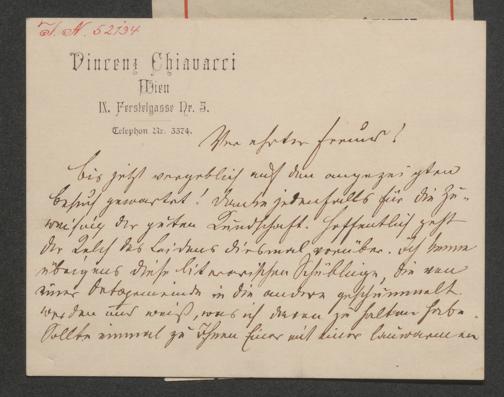 J. N. 52134
Vincenz Chiavacci
Wien
IX. Ferstelgasse Nr. 5.
Telephon Nr. 3374.
Verehrter Freund!
Bis jetzt vergeblich auf den angezeigten
Besuch gewartet! Danke jedenfalls für die Zu-
weisung der guten Kundschaft. Hoffentlich geht
der Kelch des Leidens diesmal vorüber. Ich kenne
übrigens diese literarischen Schüblinge, die von
einer Ortsgemeinde in die andere geschummelt
werden und weiß, was ich davon zu halten habe.
Sollte einmal zu Ihnen Einer mit einer lauwarmen